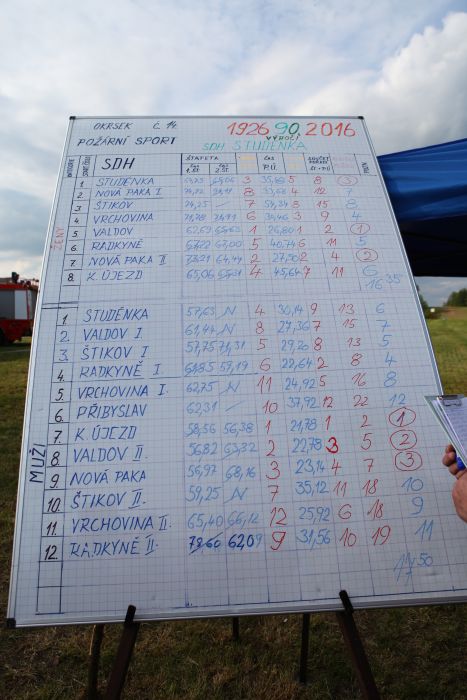 OKRSEK č. 14
1926 90. 2016
POŽÁRNÍ SPORT VÝROČÍ
SDH STUDÉNKA
SDH ŠTAFETA ČAS P.Ú. SOUČET
ŽENY
1 STUDÉNKA 3 35,88 5 8 3
2 NOVÁ PAKA I 8 4 12 7
3 ŠTIKOV 74,25 7 8 15 8
4 VRCHOVINA 71,78 6 3 9 4
5 VALDOV 62,69 1 26,80 1 2 1
6. RADKYNĚ 63,00 5 40,74 6 11 5
7. NOVÁ PAKA II 64,44 2 27,50 2 4 2
8. K. ÚJEZD 65,06 4 45,64 7 11 6
16 35
MUŽI
1. STUDÉNKA 57,63 N 4 30,14 9 13 6
2. VALDOV I 61,44 N 8 27,36 7 15 7
3. ŠTIKOV I 57,75 71,31 5 29,26 8 13 5
4. RADKYNĚ I 57,19 6 22,64 2 8 4
5. VRCHOVINA I. 62,75 N 11 24,92 5 16 8
6. PŘIBYSLAV 62,31 10 37,92 12 22 12
7. K. ÚJEZD 58,56 56,38 1 21,78 1 2 1
8. VALDOV II. 56,82 63,32 2 22,78 3 5 2
9. NOVÁ PAKA 56,97 68,16 3 23,14 4 7 3
10. ŠTIKOV II. 59,25 N 7 35,12 11 18 10
11. VRCHOVINA II. 65,40 66,12 12 25,92 6 18 9
12. RADKYNĚ II 62,09 9 31,56 10 19 11